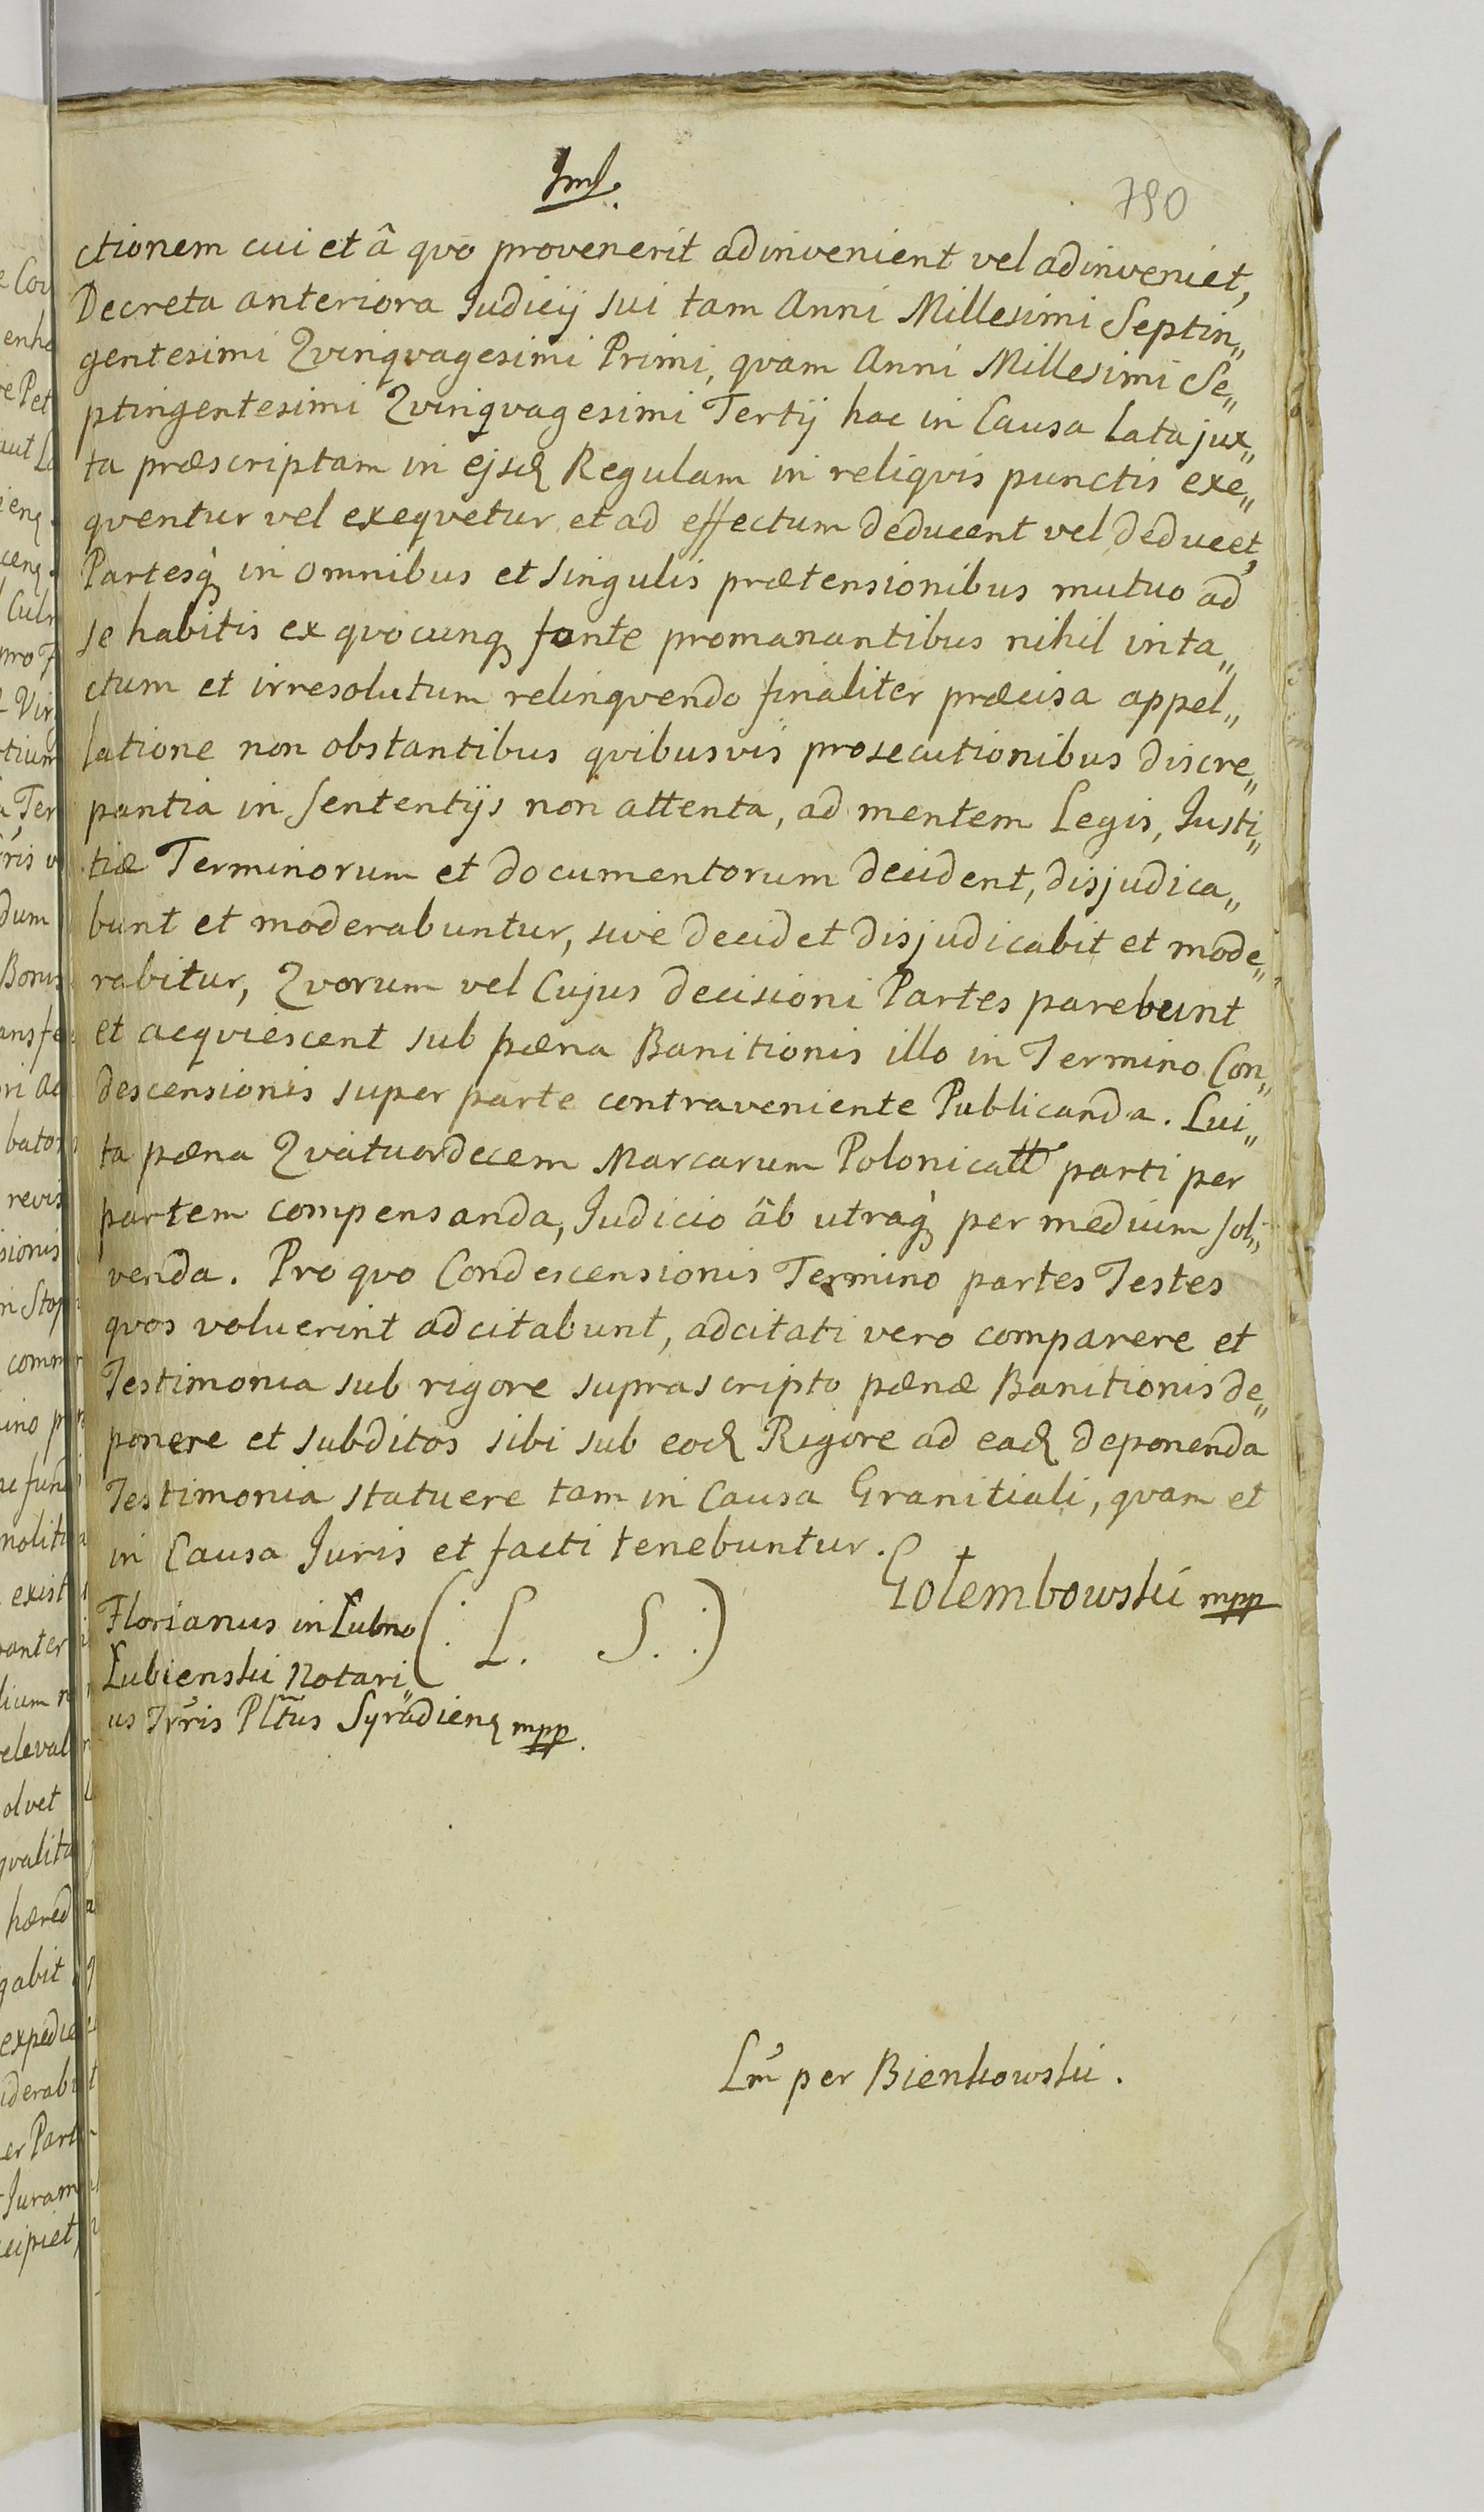 790
ctionem cui et â qvo provenerit adinvenient vel adinveniet,
Decreta anteriora Judicij sui tam Anni Millesimi Septin„
gentesimi Qvinqvagesimi Primi, qvam Anni Millesimi Se„
ptingentesimi Qvinqvagesimi Tertij hac in Causa lata jux„
ta præscriptam in ejsd Regulam in reliqvis punctis exe„
qventur vel exeqvetur et ad effectum deducent vel deducet,
Partesq́ in omnibus et singulis prætensionibus mutuo ad
se habitis ex qvocunq fonte promanantibus nihil inta„
ctum et irresolutum relinqvendo finaliter præcisa appel„
latione non obstantibus qvibusvis prosecutionibus discre„
pantia in sententijs non attenta, ad mentem Legis, Justi„
tiæ Terminorum et documentorum decident, disjudica„
bunt et moderabuntur, sive decidet disjudicabit et mode„
rabitur, Qvorum vel Cujus decisioni Partes parebunt
et acqviescent sub pæna Banitionis illo in Termino Con„
descensionis super parte contraveniente Publicanda. Lui„
ta pæna Qvatuordecem Marcarum Polonicall parti per
partem compensanda, Judicio âb utraq́ per medium sol„
venda. Pro qvo Condescensionis Termino partes Testes
qvos voluerint adcitabunt, adcitati vero comparere et
Testimonia sub rigore suprascripto pænæ Banitionis de„
ponere et subditos sibi sub eod Rigore ad ead deponenda
Testimonia statuere tam in Causa Granitiali, qvam et
in Causa Juris et facti tenebuntur.
Gołembowski mpp
Florianus in Łubno (: L. S. :)
Łubienski Notari„
us Trris Pltus Syradien mpp.
Lm̃ per Bienkowski.